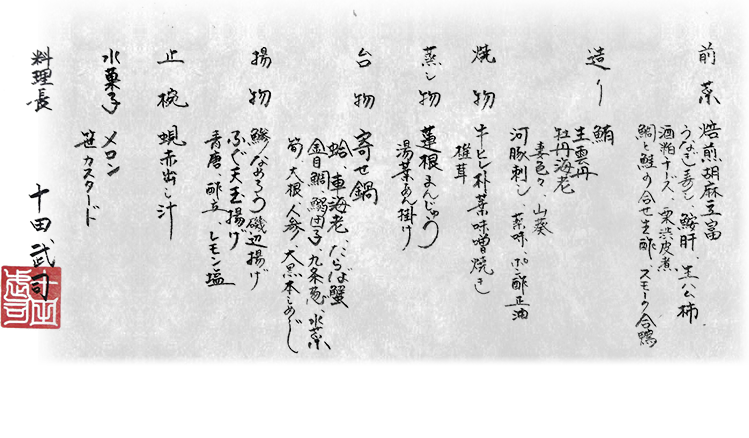 前菜 焙煎胡麻豆富
うなぎ寿し、鮟肝、生ハム柿
酒粕チーズ、栗渋皮煮
鯛と鮭の合せ生酢、スモーク合鴨
造り 鮪
生雲丹
牡丹海老
妻色々、山葵
河豚刺し、薬味、ポン酢正油
焼物 牛ヒレ朴葉味噌焼き
椎茸
蒸し物 蓮根まんじゅう
湯葉あん掛け
台物 寄せ鍋
蛤、車海老、たらば蟹
金目鯛、鰯団子、九条葱、水菜
筍、大根、人参、大黒本しめじ
揚物 鯵なめろう磯辺揚げ
ふぐ天玉揚げ
青唐、酢立、レモン塩
止椀 蜆赤出し汁
水菓子 メロン
笹カスタード
料理長 十田武司